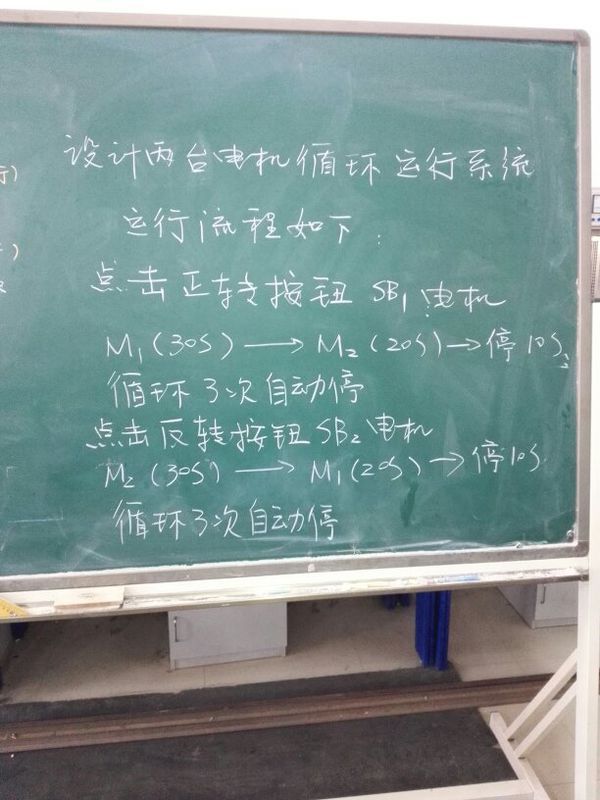 设计两台电机循环运行系统
运行流程如下:
点击正转按钮SB₁电机
M₁(30S)→M₂(20S)→停10S,
循环3次自动停
点击反转按钮SB₂电机
M₂(30S)→M₁(20S)→停10S.
循环3次自动停